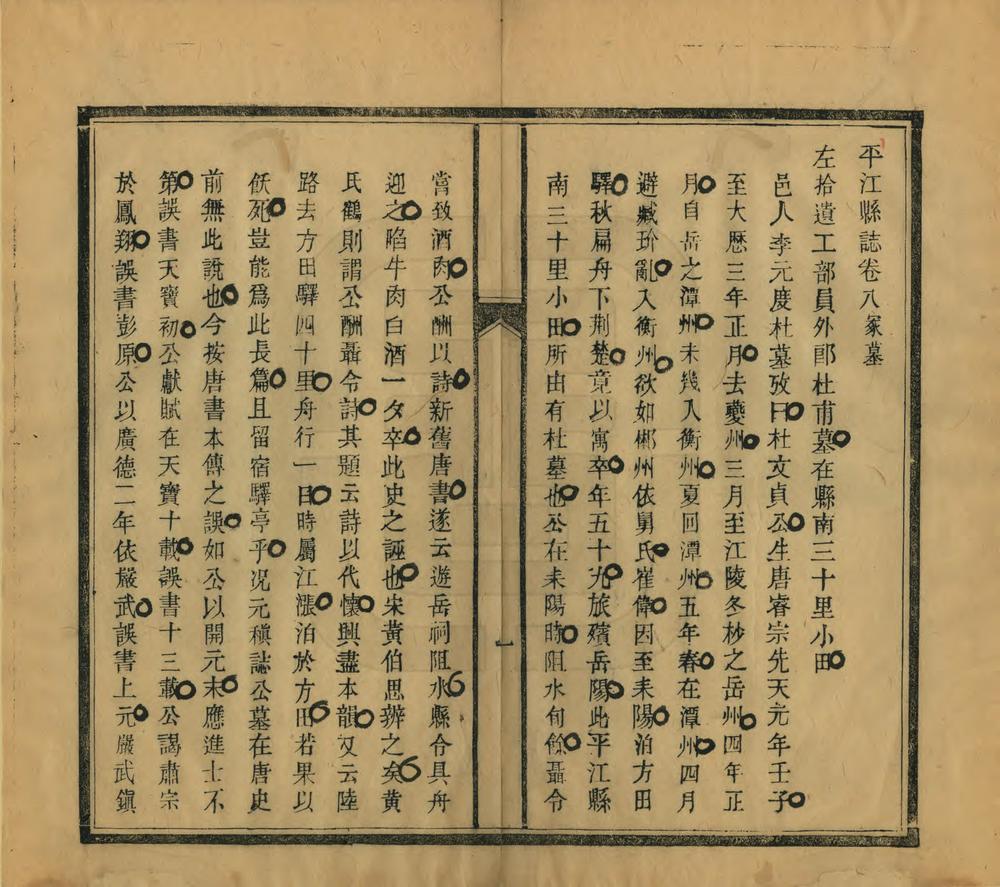 平江縣誌卷八冢墓
左拾遺工部員外郎杜甫墓在縣南三十里小田
邑人李元度杜墓攷曰杜文貞公生唐睿宗先天元年壬子
至大歷三年正月去夔州三月至江陵冬杪之岳州四年正
月自岳之潭州未幾入衡州夏回潭州五年春在潭州四月
避臧玠亂入衡州欲如郴州依舅氏崔偉因至耒陽泊方田
驛秋扁舟下荆楚竟以寓卒年五十九旅殯岳陽此平江縣
南三十里小田所由有杜墓也公在耒陽時阻水旬餘聶令
嘗致酒肉公酬以詩新舊唐書遂云遊岳祠阻水縣令具舟
迎之䧟牛肉白酒一夕卒此史之誣也宋黃伯思辨之矣黃
氏鶴則謂公酬聶令詩其題云詩以代懷興盡本韻又云陸
路去方田驛四十里舟行一日時屬江漲泊於方田若果以
飫死豈能爲此長篇且留宿驛亭乎况元稹誌公墓在唐史
前無此說也今按唐書本傳之誤如公以開元末應進士不
第誤書天寶初公獻賦在天寶十載誤書十三載公謁肅宗
於鳳翔誤書彭原公以廣德二年依嚴武誤書上元嚴武鎮
一